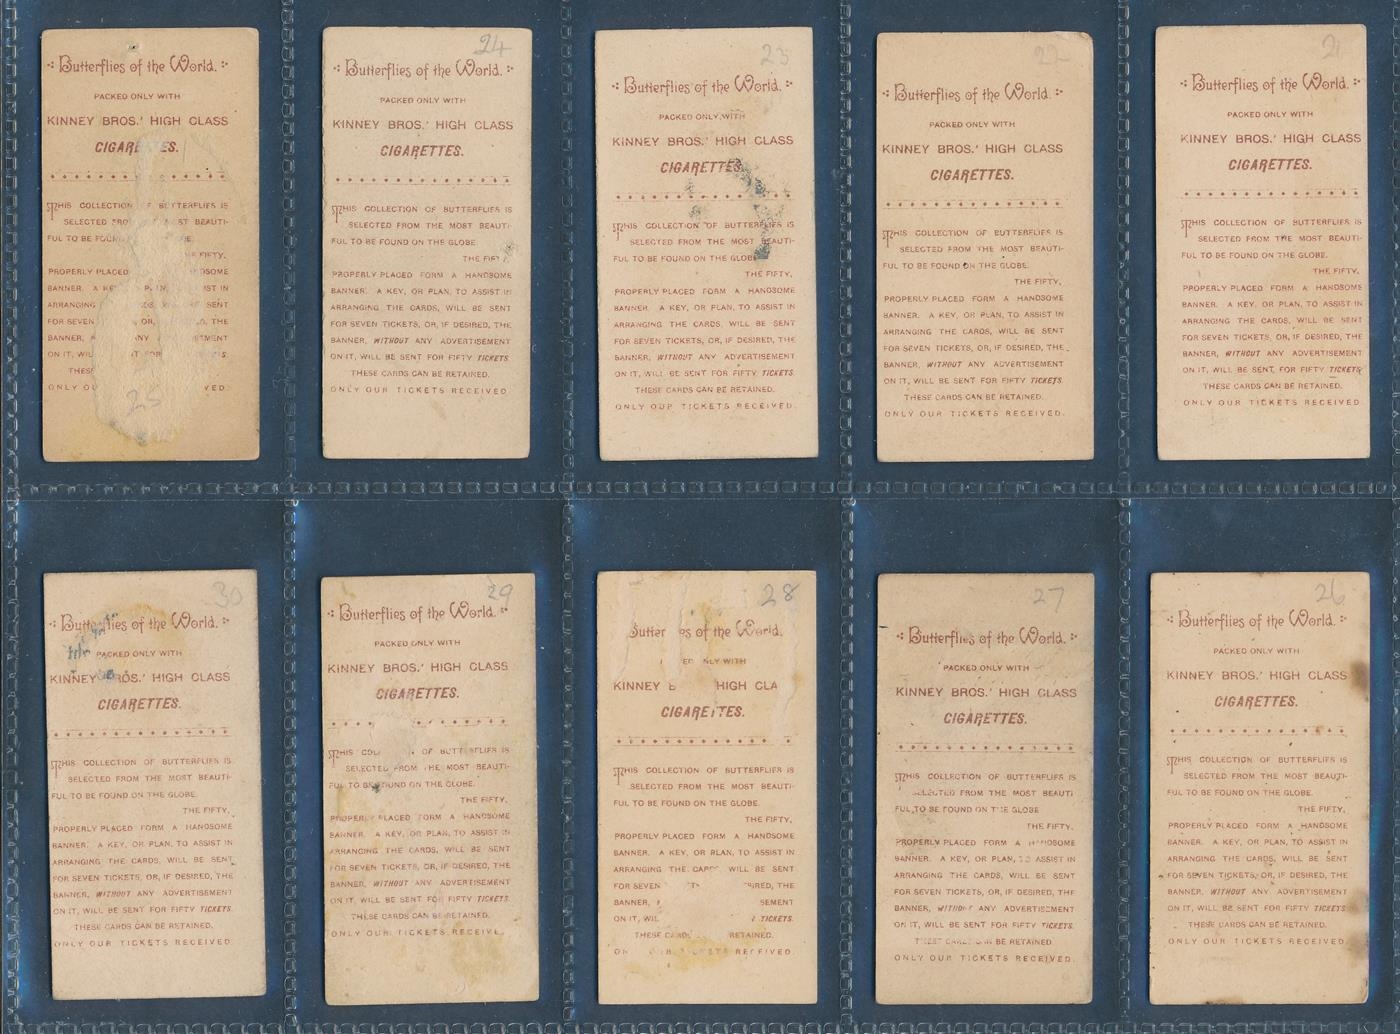 Butterflies of the World.
PACKED ONLY WITH
KINNEY BROS.' HIGH CLASS
CIGARETTES.
THIS COLLECTION OF BUTTERFLIES IS
SELECTED FROM MOST BEAUTI-
FUL TO BE
THE FIFTY,
PROPERLY PLACED
BANNER. A IST IN
ARRANGING SENT
FOR SEVEN OR, THE
BANNER,
ON IT,
THESE
ONLY
25
24
Butterflies of the World.
PACKED ONLY WITH
KINNEY BROS.' HIGH CLASS
CIGARETTES.
THIS COLLECTION OF BUTTERFLIES IS
SELECTED FROM THE MOST BEAUTI-
FUL TO BE FOUND ON THE GLOBE.
THE
PROPERLY PLACED FORM A HANDSOME
BANNER. A KEY, OR PLAN, TO ASSIST IN
ARRANGING THE CARDS, WILL BE SENT
FOR SEVEN TICKETS, OR, IF DESIRED, THE
BANNER, WITHOUT ANY ADVERTISEMENT
ON IT, WILL BE SENT FOR FIFTY TICKETS.
THESE CARDS CAN BE RETAINED.
ONLY OUR TICKETS RECEIVED
23
Butterflies of the World.
PACKED ONLY WITH
KINNEY BROS.' HIGH CLASS
CIGARETTES.
THIS COLLECTION OF BUTTERFLIES IS
SELECTED FROM THE MOST BEAUTI-
FUL TO BE FOUND ON THE GLOBE
THE FIFTY,
PROPERLY PLACED FORM A HANDSOME
BANNER. A KEY, OR PLAN, TO ASSIST IN
ARRANGING THE CARDS, WILL BE SENT
FOR SEVEN TICKETS, OR, IF DESIRED, THE
BANNER, WITHOUT ANY ADVERTISEMENT
ON IT, WILL BE SENT FOR FIFTY TICKETS.
THESE CARDS CAN BE RETAINED.
ONLY OUR TICKETS RECEIVED.
22
Butterflies of the World.
PACKED ONLY WITH
KINNEY BROS.' HIGH CLASS
CIGARETTES.
THIS COLLECTION OF BUTTERFLIES IS
SELECTED FROM THE MOST BEAUTI-
FUL TO BE FOUND ON THE GLOBE.
THE FIFTY,
PROPERLY PLACED FORM A HANDSOME
BANNER. A KEY, OR PLAN, TO ASSIST IN
ARRANGING THE CARDS, WILL BE SENT
FOR SEVEN TICKETS, OR, IF DESIRED, THE
BANNER, WITHOUT ANY ADVERTISEMENT
ON IT, WILL BE SENT FOR FIFTY TICKETS.
THESE CARDS CAN BE RETAINED.
ONLY OUR TICKETS RECEIVED.
21
Butterflies of the World.
PACKED ONLY WITH
KINNEY BROS.' HIGH CLASS
CIGARETTES.
THIS COLLECTION OF BUTTERFLIES IS
SELECTED FROM THE MOST BEAUTI-
FUL TO BE FOUND ON THE GLOBE.
THE FIFTY,
PROPERLY PLACED FORM A HANDSOME
BANNER. A KEY, OR PLAN, TO ASSIST IN
ARRANGING THE CARDS, WILL BE SENT
FOR SEVEN TICKETS, OR, IF DESIRED, THE
BANNER, WITHOUT ANY ADVERTISEMENT
ON IT, WILL BE SENT FOR FIFTY TICKETS
THESE CARDS CAN BE RETAINED.
ONLY OUR TICKETS RECEIVED
30
Butterflies of the World.
PACKED ONLY WITH
KINNEY BROS.' HIGH CLASS
CIGARETTES.
THIS COLLECTION OF BUTTERFLIES IS
SELECTED FROM THE MOST BEAUTI-
FUL TO BE FOUND ON THE GLOBE.
THE FIFTY,
PROPERLY PLACED FORM A HANDSOME
BANNER. A KEY, OR PLAN, TO ASSIST IN
ARRANGING THE CARDS, WILL BE SENT
FOR SEVEN TICKETS, OR, IF DESIRED, THE
BANNER, WITHOUT ANY ADVERTISEMENT
ON IT, WILL BE SENT FOR FIFTY TICKETS.
THESE CARDS CAN BE RETAINED.
ONLY OUR TICKETS RECEIVED
29
Butterflies of the World.
PACKED ONLY WITH
KINNEY BROS.' HIGH CLASS
CIGARETTES.
THIS OF BUTTERFLIES IS
SELECTED FROM THE MOST BEAUTI-
FUL TO BE FOUND ON THE GLOBE.
THE FIFTY,
PROPERLY PLACED FORM A HANDSOME
BANNER. A KEY, OR PLAN, TO ASSIST IN
ARRANGING THE CARDS, WILL BE SENT
FOR SEVEN TICKETS, OR, IF DESIRED, THE
BANNER, WITHOUT ANY ADVERTISEMENT
ON IT, WILL BE SENT FOR FIFTY TICKETS.
THESE CARDS CAN BE RETAINED.
ONLY OUR TICKETS
28
of the World.
WITH
KINNEY HIGH
CIGARETTES.
THIS COLLECTION OF BUTTERFLIES IS
SELECTED FROM THE MOST BEAUTI-
FUL TO BE FOUND ON THE GLOBE.
THE FIFTY,
PROPERLY PLACED FORM A HANDSOME
BANNER. A KEY, OR PLAN, TO ASSIST IN
ARRANGING THE CARDS, WILL BE SENT
FOR SEVEN THE
BANNER,
ON IT, TICKETS.
THESE
27
Butterflies of the World.
PACKED ONLY WITH
KINNEY BROS.' HIGH CLASS
CIGARETTES.
THIS COLLECTION OF BUTTERFLIES IS
SELECTED FROM THE MOST BEAUTI-
FUL TO BE FOUND ON THE GLOBE
THE FIFTY,
PROPERLY PLACED FORM A HANDSOME
BANNER. A KEY, OR PLAN, ASSIST IN
ARRANGING THE CARDS, WILL BE SENT
FOR SEVEN TICKETS, OR, IF DESIRED, THE
BANNER, WITHOUT ANY ADVERTISEMENT
ON IT, WILL BE SENT FOR FIFTY TICKETS.
BE RETAINED
ONLY OUR TICKETS RECEIVED.
26
Butterflies of the World.
PACKED ONLY WITH
KINNEY BROS.' HIGH CLASS
CIGARETTES.
THIS COLLECTION OF BUTTERFLIES IS
SELECTED FROM THE MOST BEAUTI-
FUL TO BE FOUND ON THE GLOBE.
THE FIFTY,
PROPERLY PLACED FORM A HANDSOME
BANNER. A KEY, OR PLAN, TO ASSIST IN
ARRANGING THE CARDS, WILL BE SENT
FOR SEVEN TICKETS, OR, IF DESIRED, THE
BANNER, WITHOUT ANY ADVERTISEMENT
ON IT, WILL BE SENT FOR FIFTY TICKETS
THESE CARDS CAN BE RETAINED.
ONLY OUR TICKETS RECEIVED